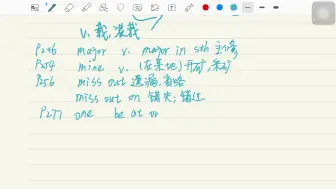 v. 载,装载
P246 major v. major in sth 主修
P254 mine v. (在某地)开矿,采矿
P256 miss out 遗漏,省略
miss out on 错失;错过
P277 one be at o